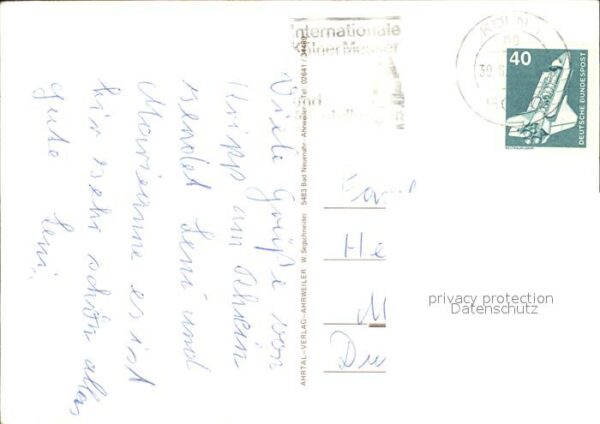 Viele Grüße von
am Rhein
sendet Leni und
Marianne es ist
hir sehr schön alles
gute Leni.
AHRTAL-VERLAG-AHRWEILER W. Segschneider 5483 Bad Neuenahr - Ahrweiler Tel. 02641 / 34480
Internationale
Kölner Messen
und
KÖLN 1
40
DEUTSCHE BUNDESPOST
Fam
He
M
privacy protection
Datenschutz